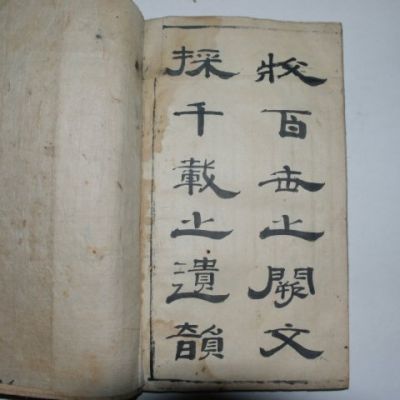 收百世之闕文
採千載之遺韻